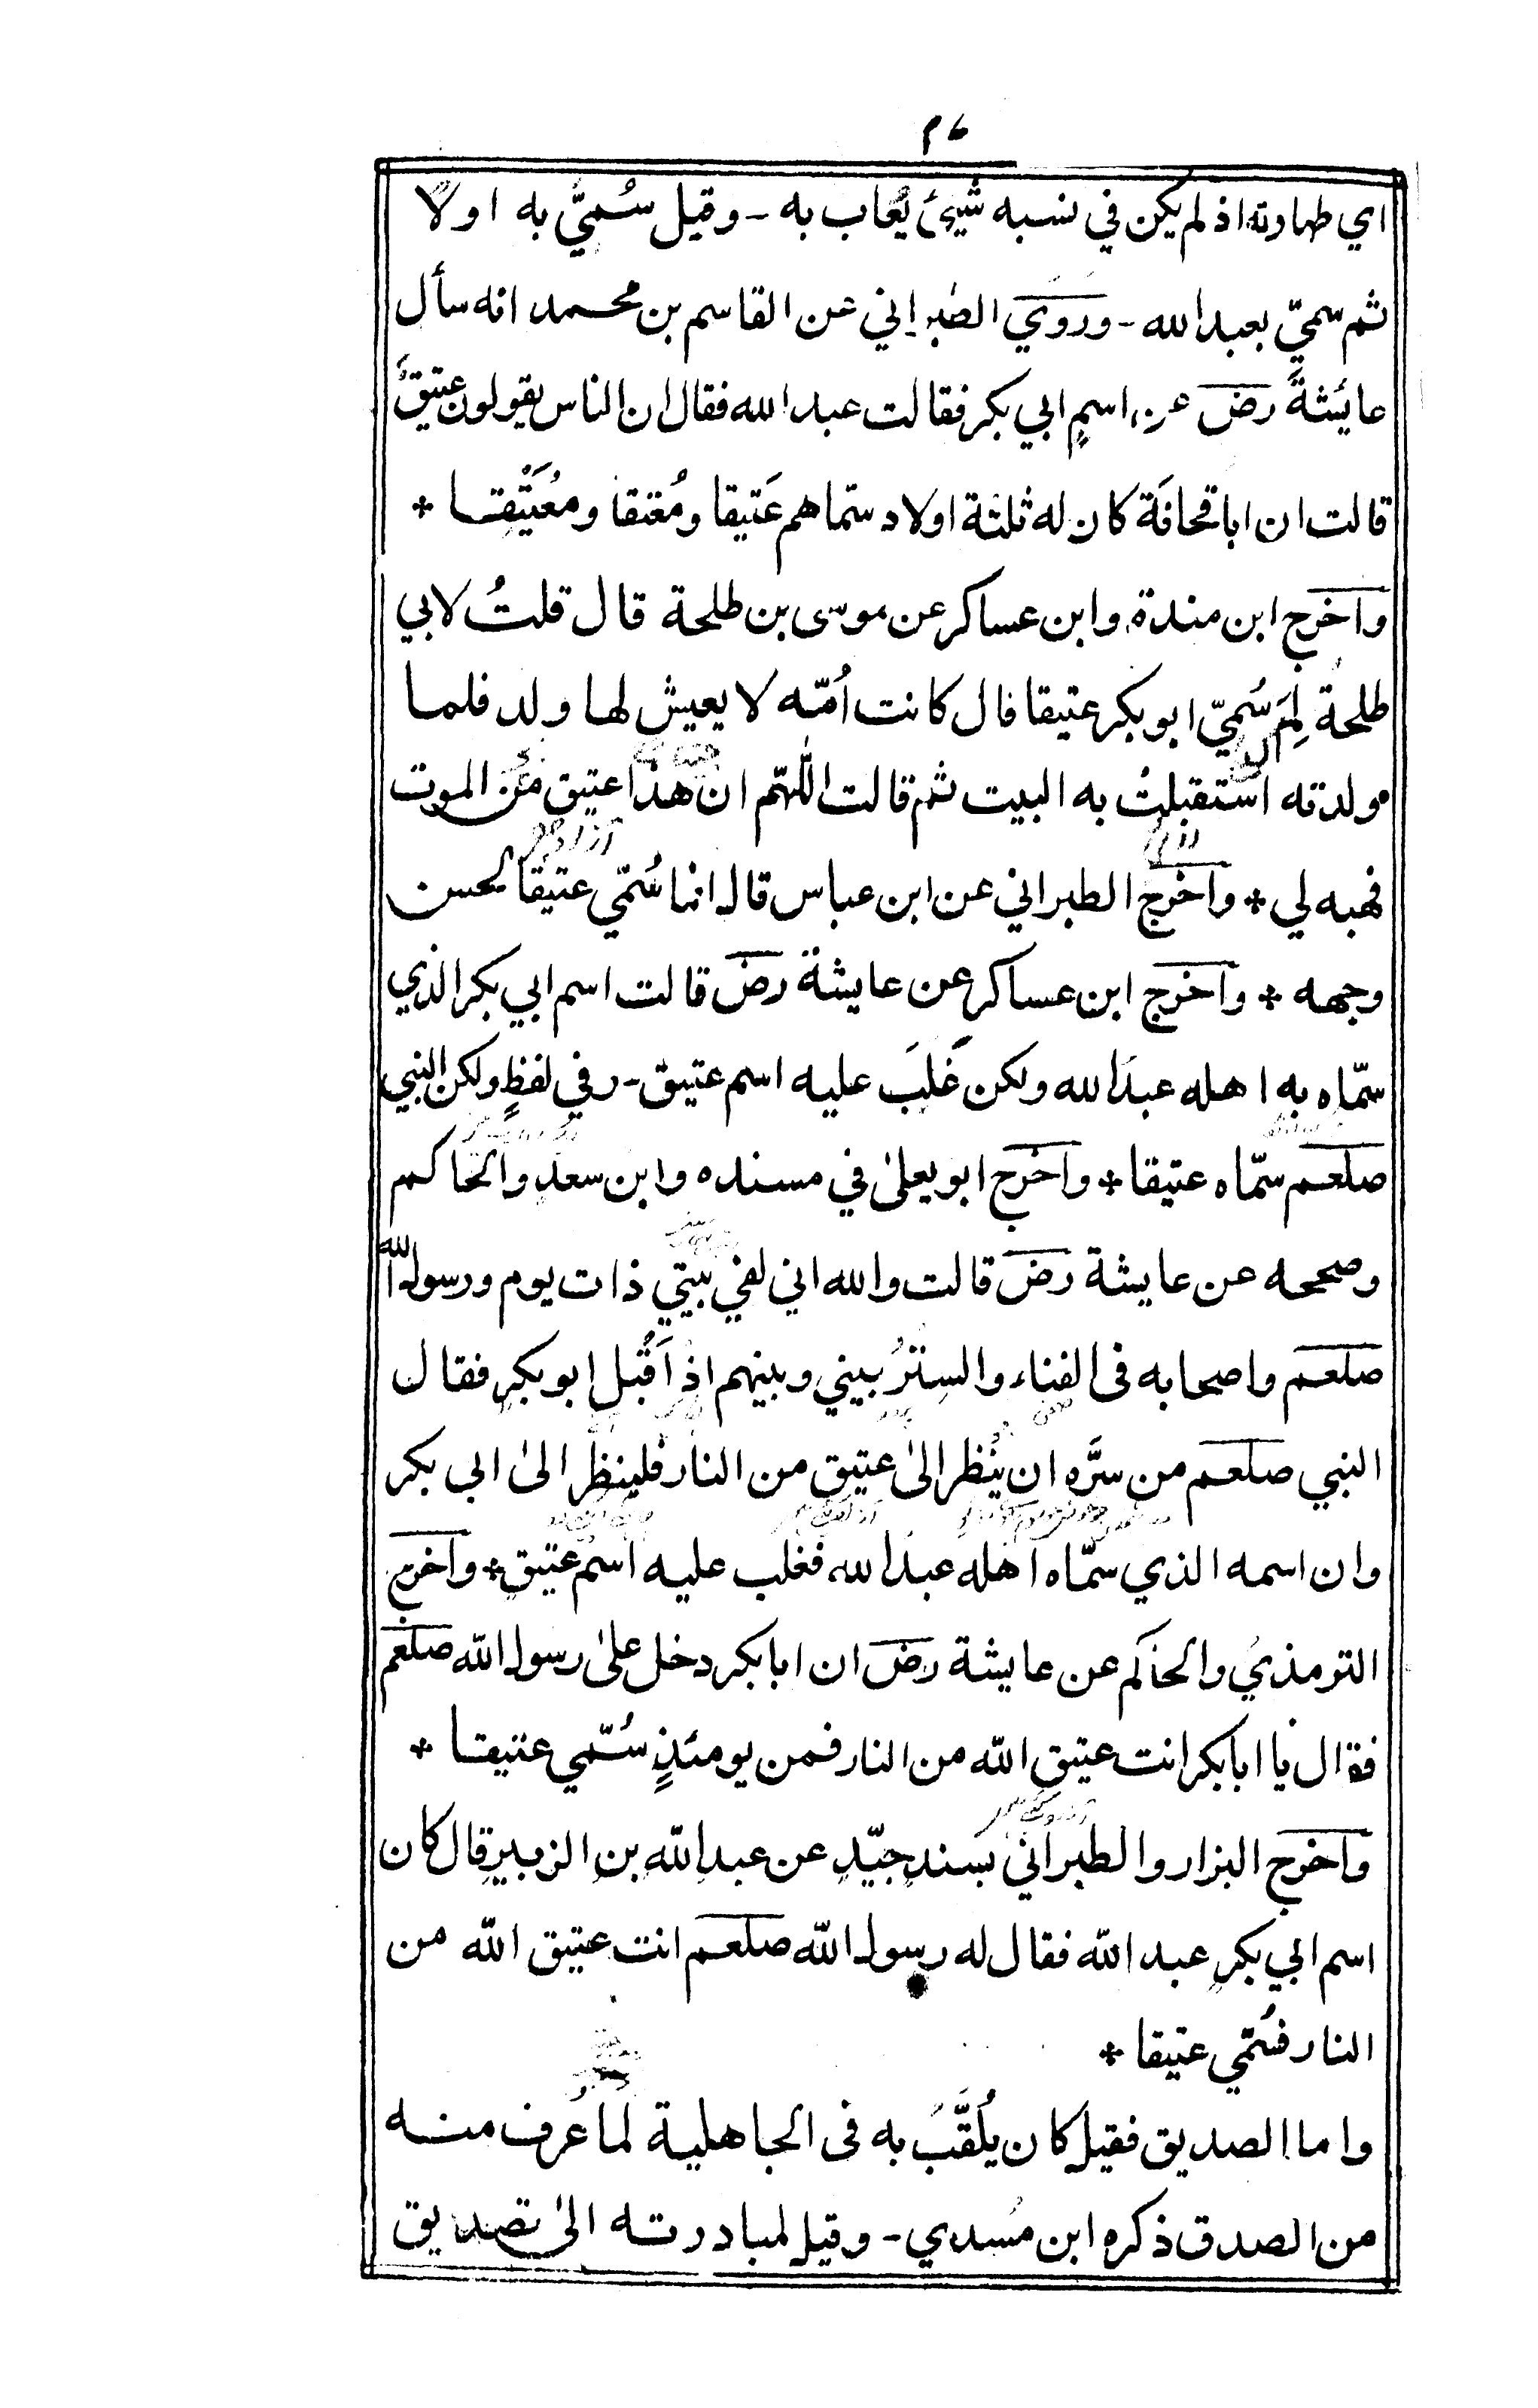 اي طهارته اذ لم يكن في نسبه شيئ يُعاب به - وقيل سُميَّ به اولا
ثم سميّ بعبد الله - وروي الطبراني عن القاسم بن محمد انه سأل
عايشةَ رض عن اسمِ ابي بكر فقالت عبد الله فقال ان الناس يقولون عتيقٌ
قالت ان ابا قحافَة كان له ثلثة اولاد سمّاهم عَتيقا ومُعتقا ومعَُتَّقِا *
واخرج ابن مندة وابن عساكر عن موسى بن طلحة قال قلتُ لابي
طلحة لِمَ سُميّ ابو بكر عتيقا قال كانت اُمّه لا يعيش لها ولد فلما
ولدته استقبلتْ به البيت ثم قالت اللّٰهمّ ان هذا عتيق من الموت
فهبه لي * واخرج الطبراني عن ابن عباس قال انما سُمّي عتيقا لحسن
وجهه * واخرج ابن عساكر عن عايشة رض قالت اسم ابي بكر الذي
سمّاه به اهله عبدَ الله ولكن غَلبَ عليه اسم عتيق - وفي لفظٍ ولكن النبي
صلعم سمّاه عتيقا * واخرج ابو يعلىٰ في مسنده وابن سعد والحاكم
وصححه عن عايشة رض قالت والله اني لفي بيتي ذات يوم ورسول الله
صلعم واصحابه فى الفناء والسترُ بيني وبينهم اذ اَقْبل ابو بكر فقال
النبي صلعم من سرَّه ان ينظر الىٰ عتيق من النار فلينظر الىٰ ابي بكر
وان اسمه الذي سمّاه اهله عبدَ الله فغلب عليه اسم عتيقٍ * واخرج
الترمذي والحاكم عن عايشة رض ان ابا بكر دخل علىٰ رسول الله صلعم
فقال يا ابا بكر انت عتيق الله من النار فمن يومئذٍ سُمّي عتيقا *
واخرج البزار والطبراني بسندٍ جيّدٍ عن عبدِ اللهِ بنِ الزبيرِ قال كان
اسم ابي بكرٍ عبد الله فقال له رسول الله صلعم انت عتيق الله من
النار فسُمّي عتيقا *
واما الصديق فقيل كان يُلقَّبُ به فى الجاهلية لما عُرف منه
من الصدق ذكره ابن مُسدي - وقيل لمبادرته الىٰ تصديق